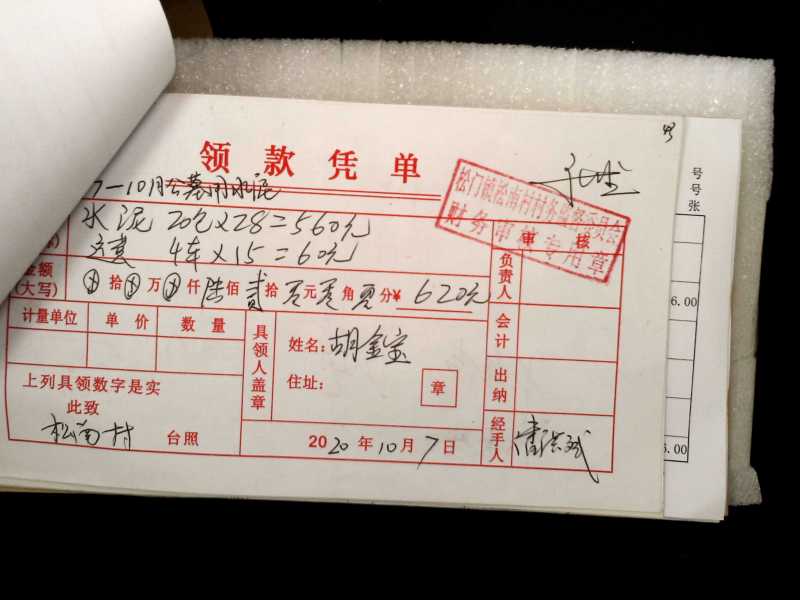 43
领款凭单
松门镇松南村村务监督委员会
财务审核专用章
7-10月公墓用水泥
水泥 20包×28=560元
运费 4车×15=60元
审核
金额
(大写) ⊗拾⊗万⊗仟陆佰贰拾零元零角零分¥ 620元
负责人
计量单位 单价 数量
具领人盖章
姓名:胡金宝
会计
住址: 章
出纳
上列具领数字是实
此致
松南村 台照
2020年10月7日
经手人
号
号
张
6.00
5.00